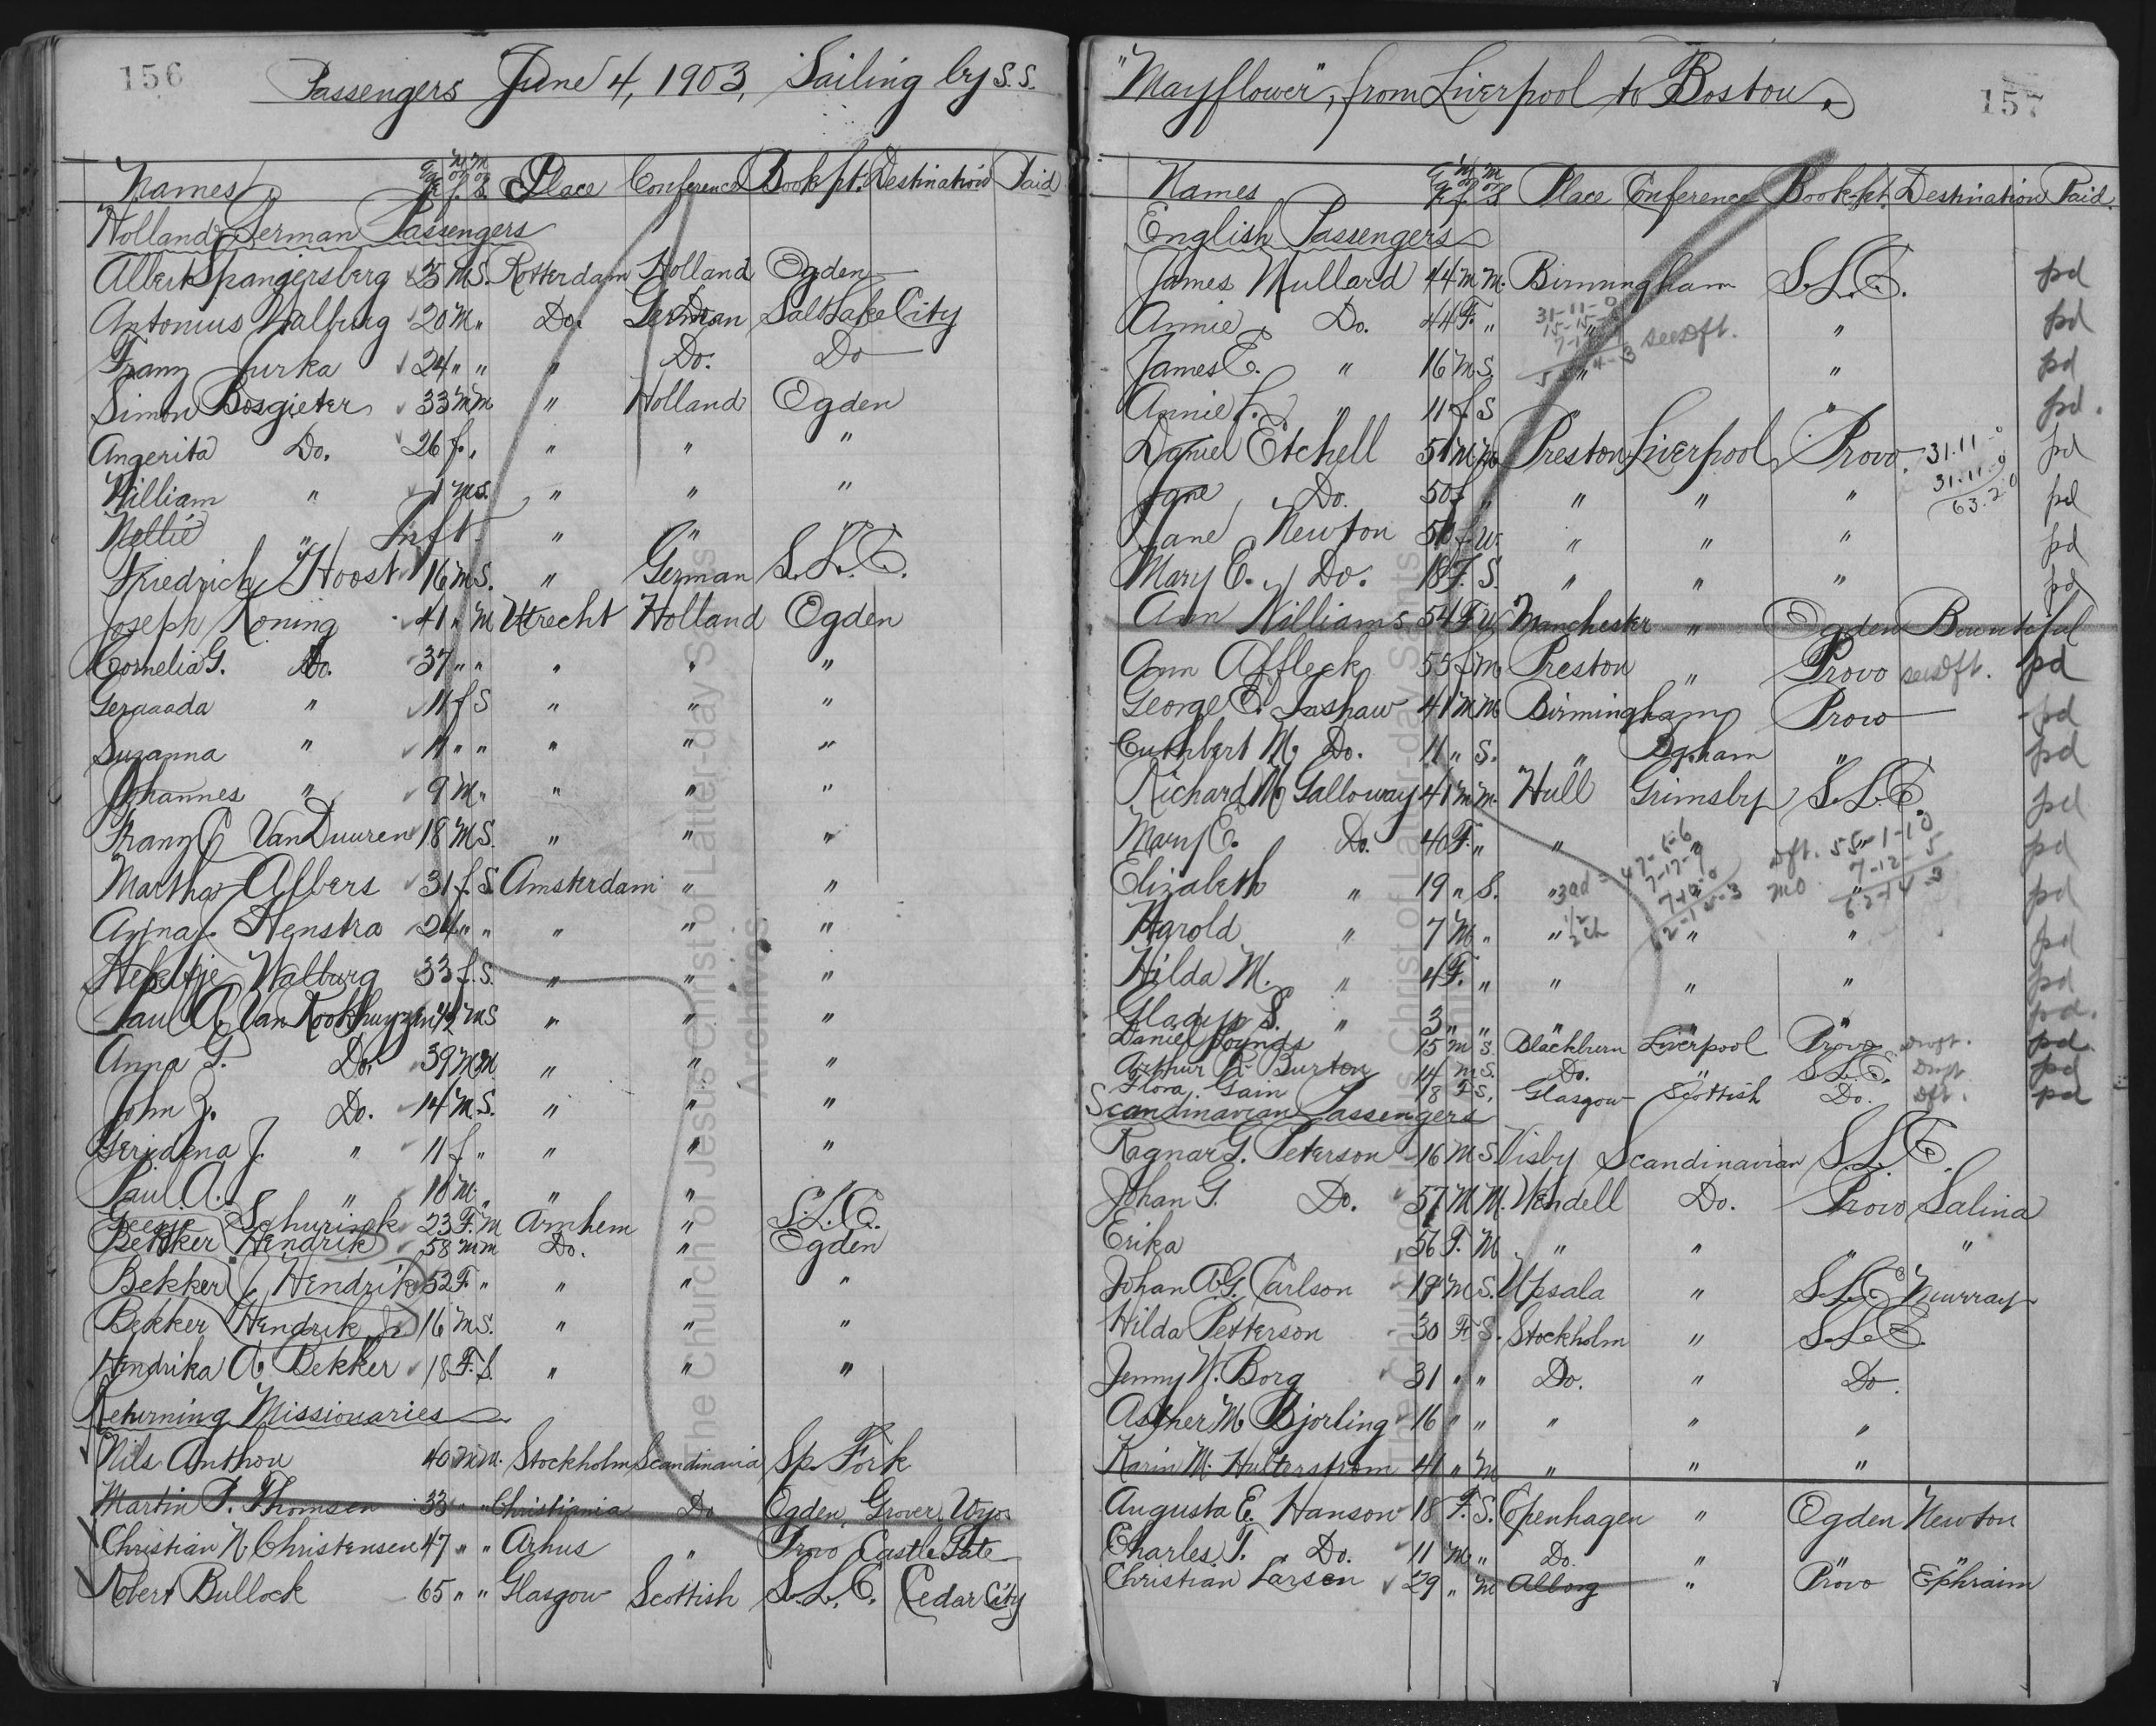 156
Passengers June 4, 1903, Sailing by S.S.
Names Age M or F M or S Place Conference Book'pt. Destination Paid
Holland German Passengers
Albert Spangersberg 25 M S. Rotterdam Holland Ogden
Antonius Walburg 20 M " Do. German Salt Lake City
Franz Jurka 24 " " " Do. Do
Simon Bosgieter 33 M M " Holland Ogden
Angerita Do. 26 f. " " " "
William " 1 M S. " " "
Nellie " Inft " "
Friedrich Hoost 16 M S. " German S.L.C.
Joseph Koning 41 " M Utrecht Holland Ogden
Cornelia G. Do. 37 " " " " "
Geraaada " 11 f S " " "
Suzanna " 11 " " " " "
Johannes " 9 M " " " "
Franz C Van Duuren 18 M S. " " "
Martha Albers 31 f. S. Amsterdam " "
Anna J. Henstra 24 " " " " "
Walburg 33 f. S. " " "
Paul A. Van M S " " "
Anna G. Do. 39 M M. " " "
John Z. Do. 14 M. S. " " "
Geridena J. " 11 f " " " "
Paul A. " 10 M. " " "
Geesje Schurink 23 F. M Arnhem " S.L.C.
Bekker Hendrik 58 M M Do. " Ogden
Bekker Hendrik 52 F. " " " "
Bekker Hendrik Jr 16 M S. " " "
Hendrika A. Bekker 18 F. S. " " "
Returning Missionaries
Nils Anthon 40 M M. Stockholm Scandinavia Sp. Fork
Martin P. Thomsen 33 " " Christiania Do Ogden, Grover, Wyo.
Christian N. Christensen 47 " " Arhus " Provo Castle Gate
Robert Bullock 65 " " Glasgow Scottish S.L.C. Cedar City
"Mayflower", from Liverpool to Boston.
157
Names Age M or F M or S Place Conference Book-pt. Destination Paid.
English Passengers
James Mullard 44 M M. Birmingham S.L.C. pd
Annie Do. 44 F. " 31-11-0 see dft. " pd
James E. " 16 M S. " " pd
Annie L. " 11 f S " " pd.
Daniel Etchell 51 M M Preston Liverpool Provo 31.11-0 pd
Jane Do. 50 f " " " " 31-11-0 63.2.0 pd
Jane Newton 50 f W. " " " pd
Mary E. Do. 18 F. S. " " " pd
Ann Williams 54 F W Manchester " Ogden Bountiful
Ann Affleck 55 f M Preston " Provo see dft. pd
George E. Inshaw 41 M M Birmingham Provo pd
Cuthbert M. Do. 11 " S. " " pd
Richard M. Galloway 41 M M. Hull Grimsby S.L.C. pd
Mary E. Do. 40 F. " " 47-5-6 dft. 55-1-10 pd
Elizabeth " 19 " S. " 3 ad 7-17-7 mo 7-12-5 pd
Harold " 7 M " " 62-14-3 " pd
Hilda M. " 4 F. " " " " pd
Gladys S. " 3 " " " " pd.
Daniel Pounds 15 M S. Blackburn Liverpool Provo Draft. pd
Arthur R. Burton 14 M S. Do. " S.L.C. Draft pd
Flora Gain 18 F S. Glasgow Scottish Do. Dft. pd
Scandinavian Passengers
Ragnar G. Peterson 16 M S. Visby Scandinavian S.L.C.
Johan G. Do. 57 M M. Wendell Do. Provo Salina
Erika 56 F. M " " " "
Johan A.G. Carlson 19 M S. Upsala " S.L.C. Murray
Hilda Petterson 30 F. S. Stockholm " S.L.C.
Jenny W. Borg 31 " " Do. " Do.
Asther M Bjorling 16 " " " " "
Karin M. Hulterstrom 41 " M " " "
Augusta E. Hanson 18 F. S. Copenhagen " Ogden Newton
Charles T. Do. 11 M " Do. "
Christian Larsen 29 " M Alborg " Provo Ephraim
The Church of Jesus Christ of Latter-day Saints
Archives
The Church of Jesus Christ of Latter-day Saints